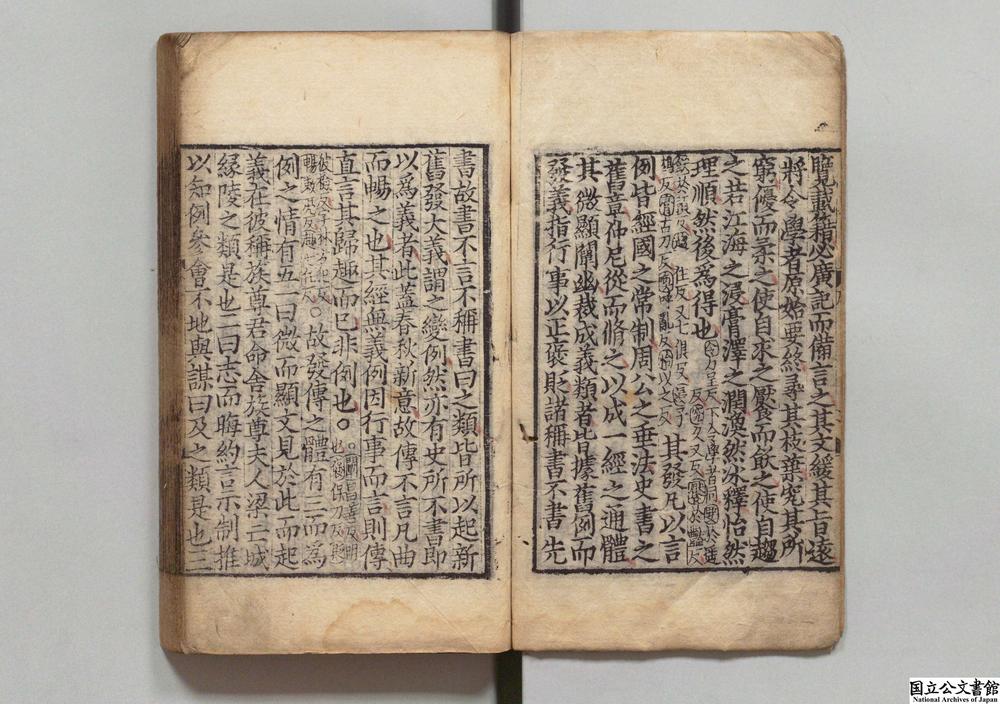 覽載籍必廣記而備言之其文緩其旨遠
將令學者原始要終尋其枝葉究其所
窮優而柔之使自求之饜而飫之使自趨
之若江海之浸膏澤之潤渙然冰釋怡然
理順然後爲得也
其發凡以言
例皆經國之常制周公之垂法史書之
舊章仲尼從而脩之以成一經之通體
其微顯闡幽裁成義類者皆據舊例而
發義指行事以正襃貶諸稱書不書先
書故書不言不稱書曰之類皆所以起新
舊發大義謂之變例然亦有史所不書即
以爲義者此蓋春秋新意故傳不言凡曲
而暢之也其經無義例因行事而言則傳
直言其歸趣而已非例也○
○故發傳之體有三而爲
例之情有五一曰微而顯文見於此而起
義在彼稱族尊君命舍族尊夫人梁亡城
緣陵之類是也二曰志而晦約言示制推
以知例參會不地與謀曰及之類是也三
国立公文書館
National Archives of Japan